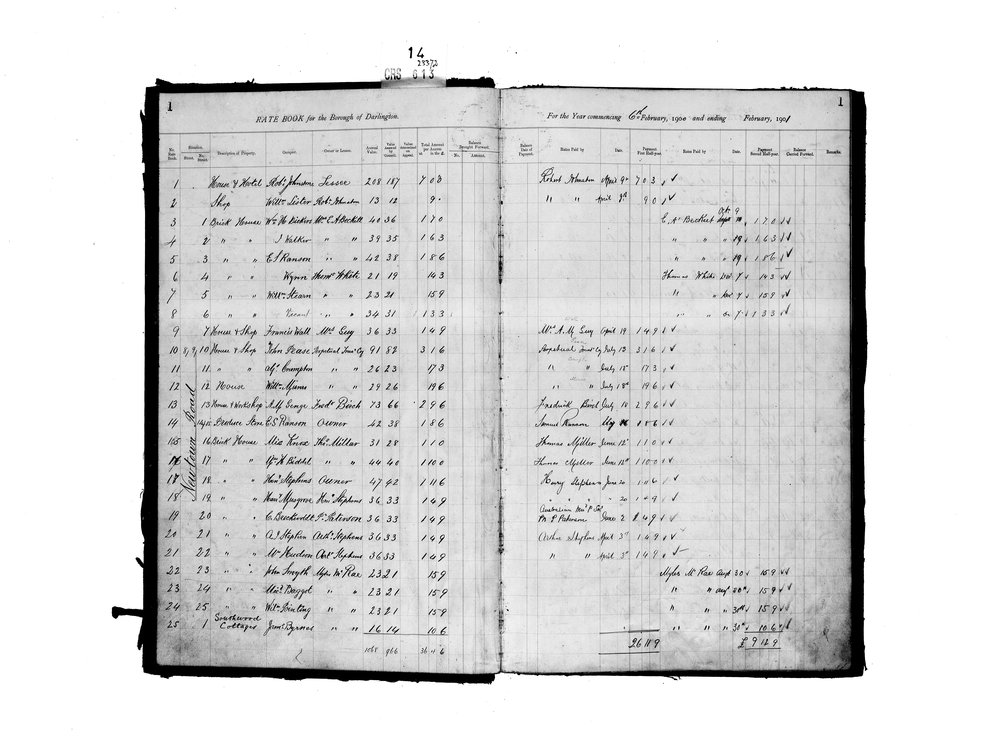 14
28372
CRS 613
1
RATE BOOK for the Borough of Darlington.
No. Rate Book. Situation. Street. No. Street. Description of Property. Occupier. Owner or Lessee. Annual Value. Value Assessed by Council. Value Determined on Appeal. Total Amount per Annum at in the £. Balance Brought Forward. No. Amount.
1 House & Hotel Robt Johnston Lessee 208 187 7 0 3
2 Shop Willm Lister Robt Johnston 13 12 9 .
3 1 Brick House Wm H Vickers Mrs E A Beckett 40 36 1 7 0
4 2 " " J Walker " " 39 35 1 6 3
5 3 " " E S Ranson " " 42 38 1 8 6
6 4 " " Wynn Thomas White 21 19 14 3
7 5 " " Willm Stearn " " 23 21 15 9
8 6 " " Vacant " " 34 31 1 3 3
9 7 House & Shop Francis Wall Mrs Guy 36 33 1 4 9
10 8, 9, 10 House & Shop John Pease Perpetual Inv Cy 91 82 3 1 6
11 11 " " Crumpton " " 26 23 17 3
12 12 House Willm " " 29 26 19 6
13 13 House & Workshop A.M George Fredk Birch 73 66 2 9 6
14 14/15 Produce Store E S Ranson Owner 42 38 1 8 6
15 16 Brick House Miss Knox Thos Millar 31 28 1 1 0
16 17 " " " " 44 40 1 10 0
17 18 " " Heny Stephens Owner 47 42 1 11 6
18 19 " " Heny Musgrove Heny Stephens 36 33 1 4 9
19 20 " " C. Paterson 36 33 1 4 9
20 21 " " A J Stephen Arthr Stephens 36 33 1 4 9
21 22 " " Wm Hudson Arthr Stephens 36 33 1 4 9
22 23 " " John Smyth Myles McRae 23 21 15 9
23 24 " " Michl Baggot " " 23 21 15 9
24 25 " " Willm " " 23 21 15 9
25 1 Southwood Cottages James Byrnes " " 16 14 10 6
Newtown Road
1068 966 36 4 6
1
For the Year commencing 6th February, 1900 and ending February, 1901
Balance Date of Payment. Rates Paid by Date. Payment First Half-year. Rates Paid by Date. Payment Second Half-year. Balance Carried Forward. Remarks.
Robert Johnston April 9th 7 0 3
" " April 9th 9 0
E. A. Beckett Sept Oct 9 1 7 0
" " " 19 1 6 3
" " " 19 1 8 6
Thomas White Dec 7 14 3
" " Dec 7 15 9
" " Dec 7 1 3 3
Mrs A. M Guy April 19 1 4 9
Perpetual Inv Cy July 13 3 1 6
" " July 18 17 3
" " July 18th 19 6
Fredrick Birch July 18 2 9 6
Samuel Ranson May 16 1 8 6
Thomas Miller June 12th 1 1 0
Thomas Miller June 12th 1 10 0
Henry Stephens June 20 1 11 6
" " " 20 1 4 9
Australian
M P Paterson June 2 1 4 9
Arthur Stephens April 3rd 1 4 9
" " April 3rd 1 4 9
Myles McRae Augt 30 15 9
" " Augt 30th 15 9
" " " 30th 15 9
" " " 30th 10 6
26 11 9
£ 9 12 9